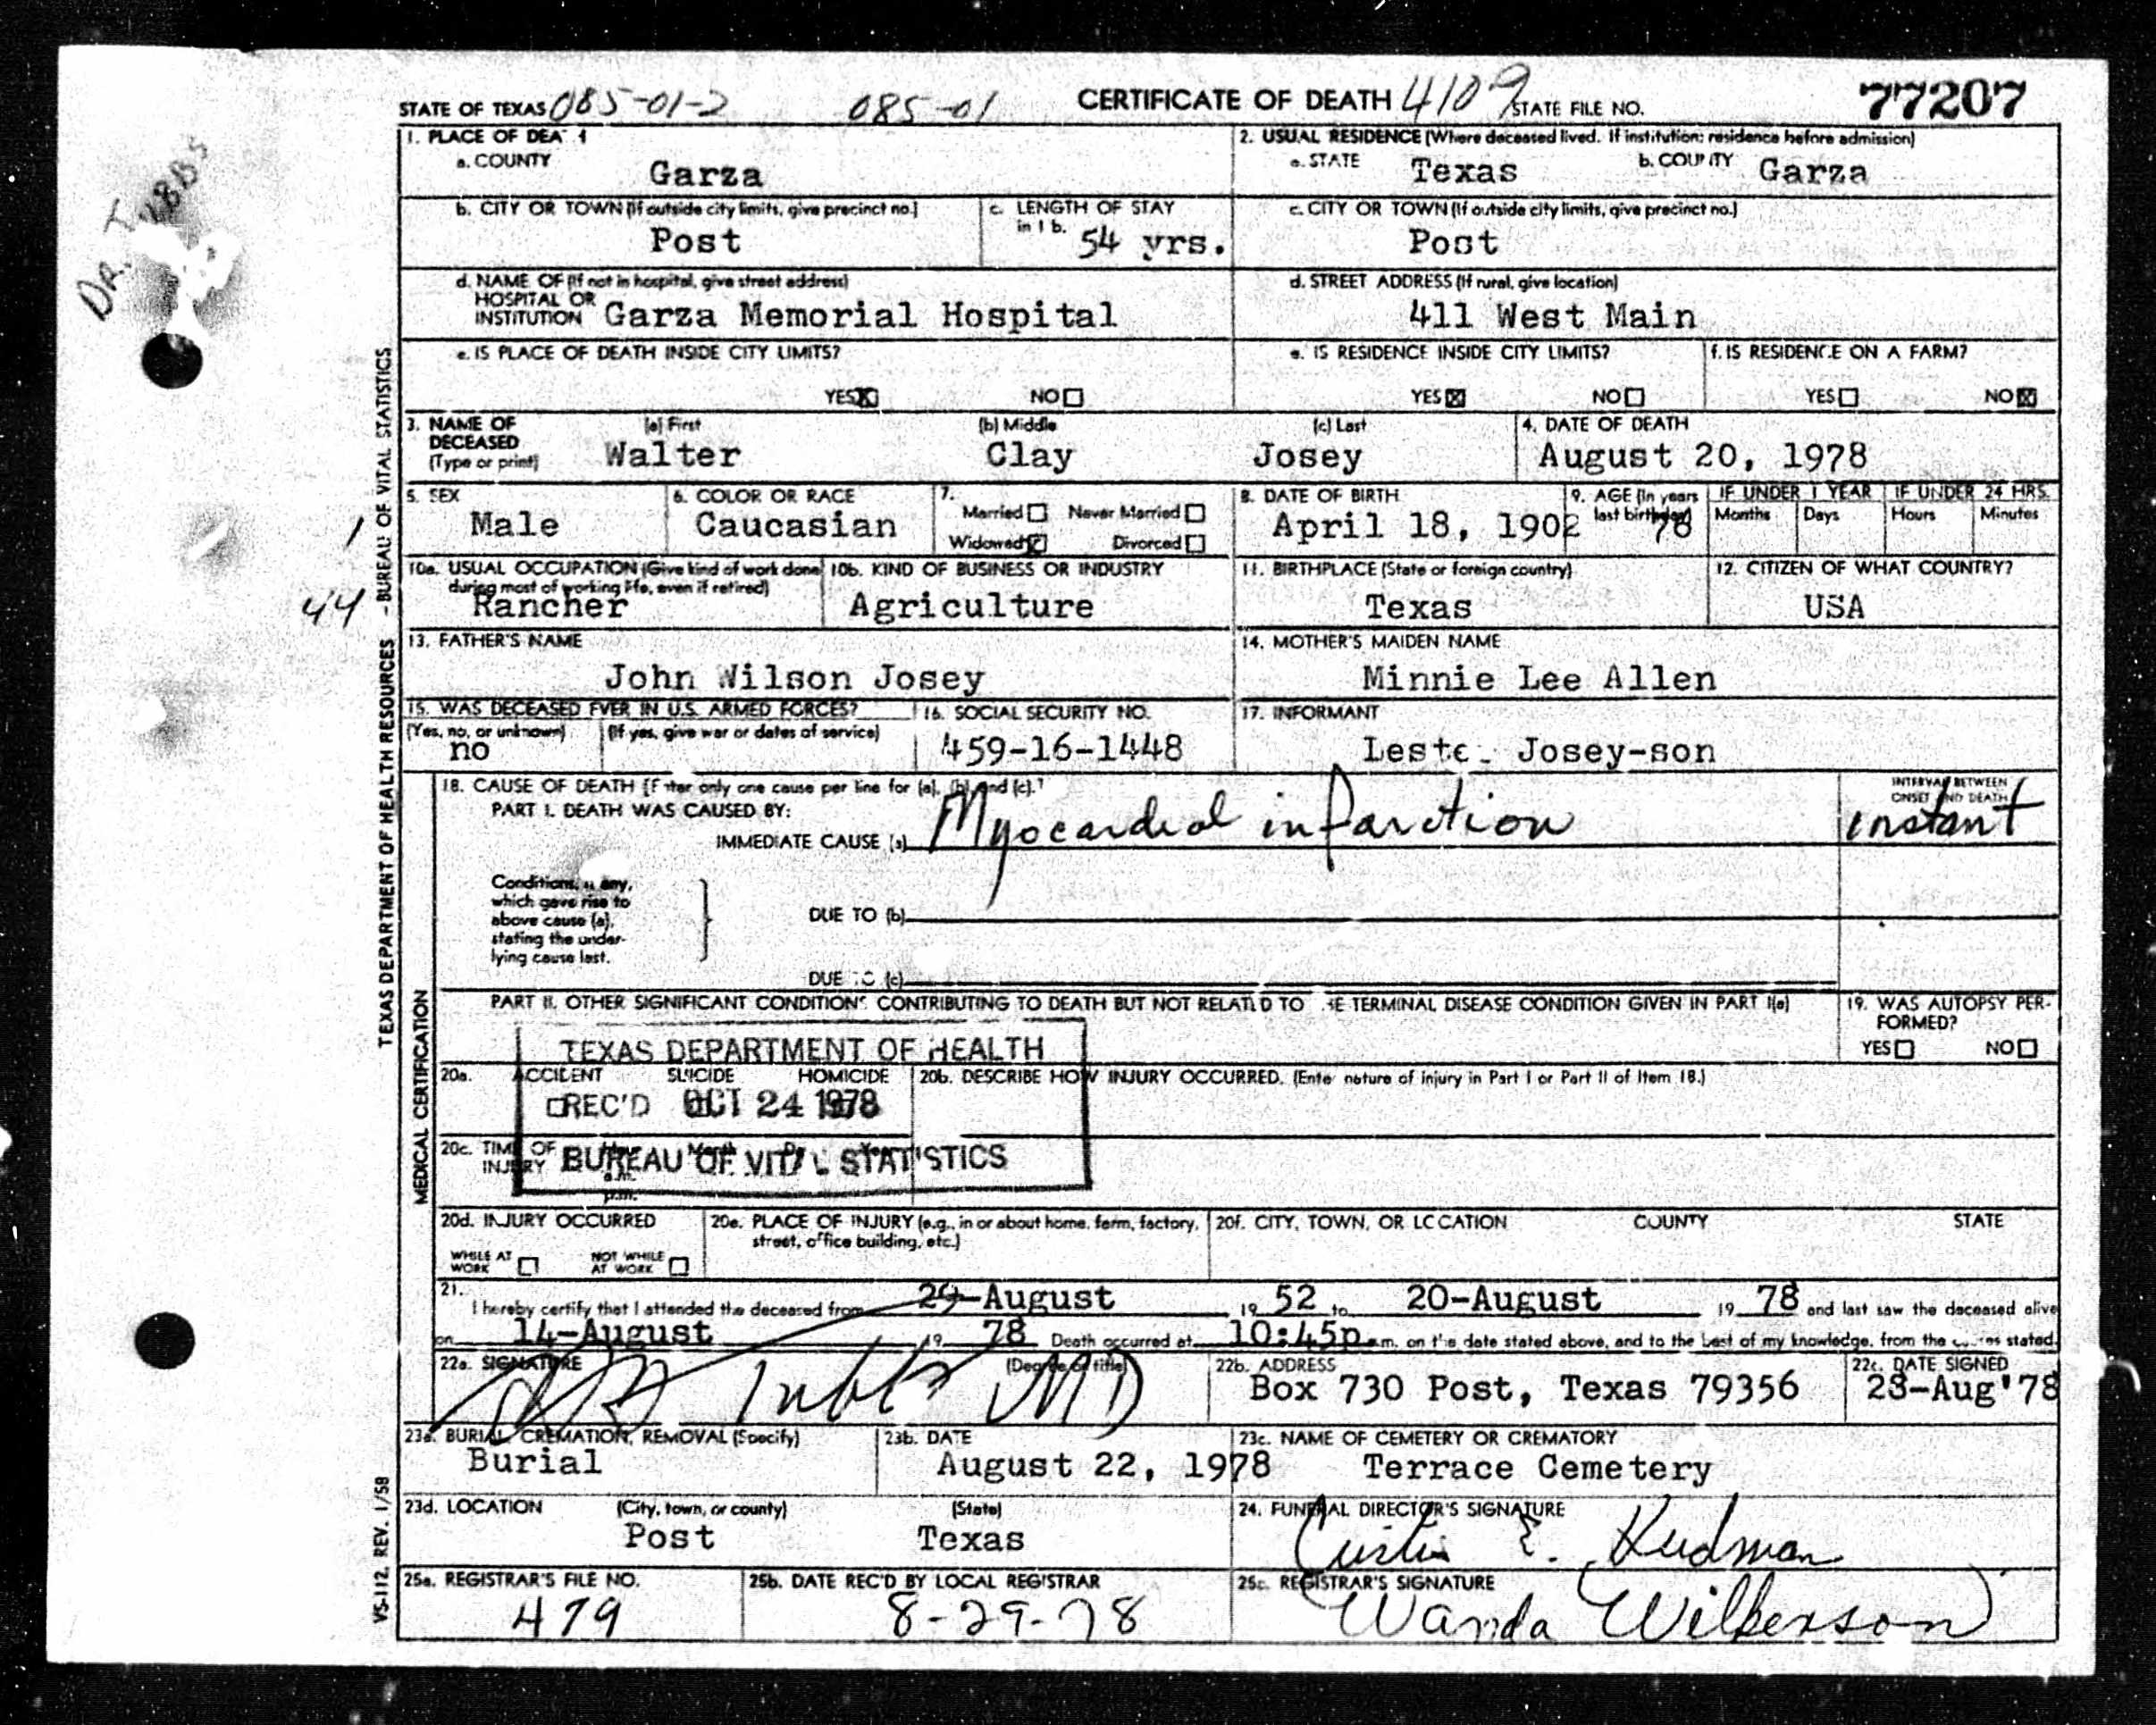 STATE OF TEXAS 085-01-2 085-01 CERTIFICATE OF DEATH 4109 STATE FILE NO. 77207
DR. TUBBS
1. PLACE OF DEATH
a. COUNTY Garza
2. USUAL RESIDENCE (Where deceased lived. If institution: residence before admission)
a. STATE Texas b. COUNTY Garza
b. CITY OR TOWN (If outside city limits, give precinct no.) Post
c. LENGTH OF STAY in 1 b. 54 yrs.
c. CITY OR TOWN (If outside city limits, give precinct no.) Post
d. NAME OF (If not in hospital, give street address)
HOSPITAL OR
INSTITUTION Garza Memorial Hospital
d. STREET ADDRESS (If rural, give location)
411 West Main
e. IS PLACE OF DEATH INSIDE CITY LIMITS?
YES ☒ NO ☐
e. IS RESIDENCE INSIDE CITY LIMITS?
YES ☒ NO ☐
f. IS RESIDENCE ON A FARM?
YES ☐ NO ☒
3. NAME OF DECEASED (Type or print)
(a) First (b) Middle (c) Last
Walter Clay Josey
4. DATE OF DEATH
August 20, 1978
5. SEX
Male
6. COLOR OR RACE
Caucasian
7.
Married ☐ Never Married ☐
Widowed ☒ Divorced ☐
8. DATE OF BIRTH
April 18, 1902
9. AGE (In years last birthday) 76
IF UNDER 1 YEAR IF UNDER 24 HRS.
Months Days Hours Minutes
1
44
10a. USUAL OCCUPATION (Give kind of work done during most of working life, even if retired)
Rancher
10b. KIND OF BUSINESS OR INDUSTRY
Agriculture
11. BIRTHPLACE (State or foreign country)
Texas
12. CITIZEN OF WHAT COUNTRY?
USA
13. FATHER'S NAME
John Wilson Josey
14. MOTHER'S MAIDEN NAME
Minnie Lee Allen
15. WAS DECEASED EVER IN U.S. ARMED FORCES?
(Yes, no, or unknown) (If yes, give war or dates of service)
no
16. SOCIAL SECURITY NO.
459-16-1448
17. INFORMANT
Josey-son
TEXAS DEPARTMENT OF HEALTH RESOURCES - BUREAU OF VITAL STATISTICS
MEDICAL CERTIFICATION
18. CAUSE OF DEATH [Enter only one cause per line for (a), (b), and (c).]
PART I. DEATH WAS CAUSED BY:
IMMEDIATE CAUSE (a) Myocardial infarction
INTERVAL BETWEEN ONSET AND DEATH
instant
Conditions, if any,
which gave rise to
above cause (a),
stating the under-
lying cause last.
DUE TO (b)
DUE TO (c)
PART II. OTHER SIGNIFICANT CONDITIONS CONTRIBUTING TO DEATH BUT NOT RELATED TO THE TERMINAL DISEASE CONDITION GIVEN IN PART I(a)
19. WAS AUTOPSY PER-
FORMED?
YES ☐ NO ☐
TEXAS DEPARTMENT OF HEALTH
REC'D OCT 24 1978
BUREAU OF VITAL STATISTICS
20a. ACCIDENT SUICIDE HOMICIDE
20b. DESCRIBE HOW INJURY OCCURRED. (Enter nature of injury in Part I or Part II of Item 18.)
20c. TIME OF INJURY
a.m.
p.m.
20d. INJURY OCCURRED
WHILE AT WORK ☐ NOT WHILE AT WORK ☐
20e. PLACE OF INJURY (e.g., in or about home, farm, factory, street, office building, etc.)
20f. CITY, TOWN, OR LOCATION COUNTY STATE
21. I hereby certify that I attended the deceased from 29-August 19 52 to 20-August 19 78 and last saw the deceased alive
on 14-August 19 78 Death occurred at 10:45p.m. on the date stated above, and to the best of my knowledge, from the causes stated.
22a. SIGNATURE (Degree or title)
Tubbs MD
22b. ADDRESS
Box 730 Post, Texas 79356
22c. DATE SIGNED
28-Aug'78
23a. BURIAL, CREMATION, REMOVAL (Specify)
Burial
23b. DATE
August 22, 1978
23c. NAME OF CEMETERY OR CREMATORY
Terrace Cemetery
23d. LOCATION (City, town, or county) (State)
Post Texas
24. FUNERAL DIRECTOR'S SIGNATURE
Curtis E. Hudman
25a. REGISTRAR'S FILE NO.
479
25b. DATE REC'D BY LOCAL REGISTRAR
8-29-78
25c. REGISTRAR'S SIGNATURE
Wanda Wilkerson
VS-112, REV. 1/58